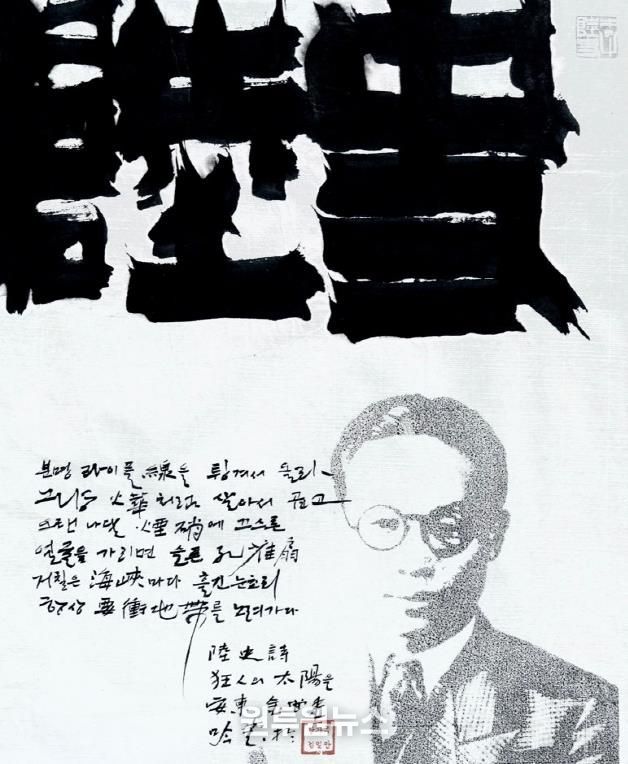 분명 라이플 線을 튕겨서 올라
그냥 火華처럼 살아서 곱고
오랜 나달 煙硝에 끄스른
얼굴을 가리면 슬픈 孔雀扇
거칠은 海峽마다 흘긴 눈초리
항상 要衝地帶를 노려가다
陸史 詩
狂人의 太陽을
安東
뉴스